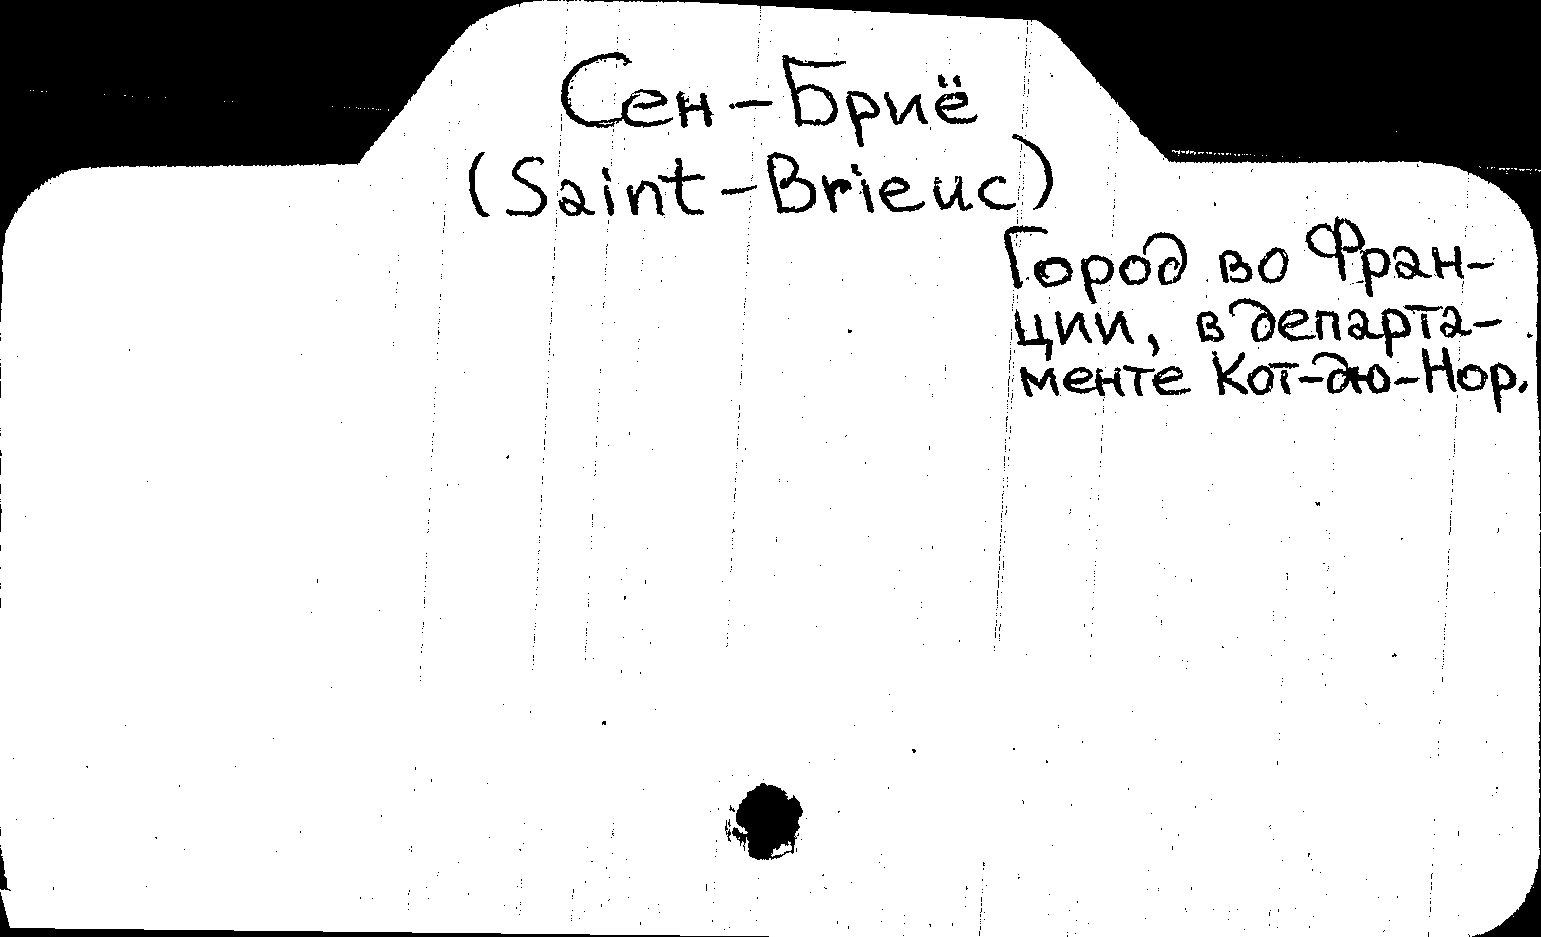 Сен-Бриё
(Saint-Brieuc)
Город во Фран-
ции, в департа-
менте Кот-дю-Нор.